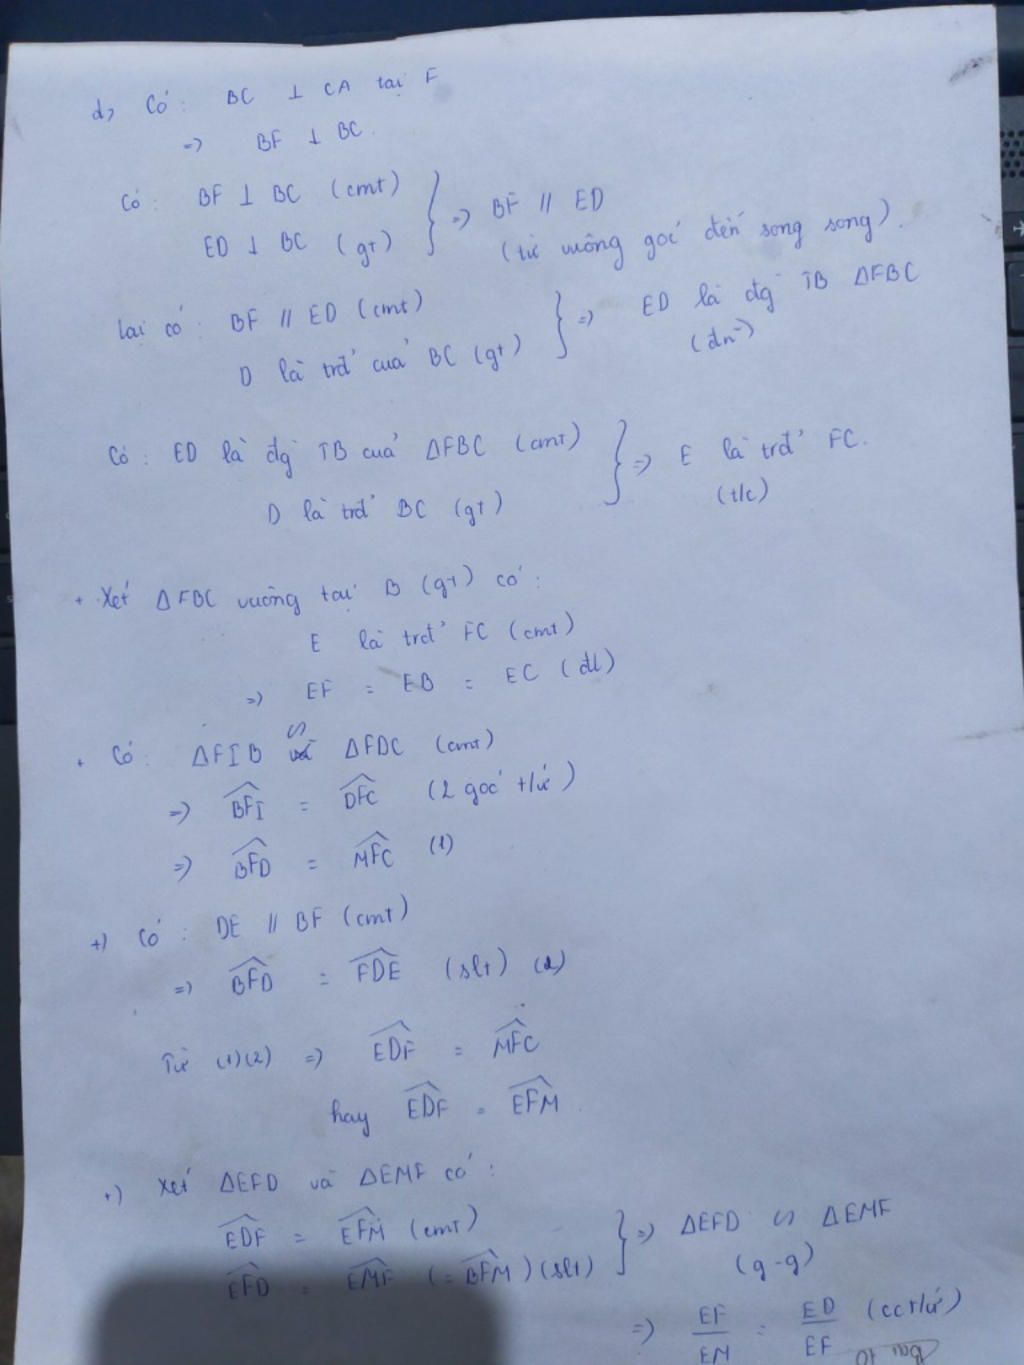 d, Có : BC ⊥ CA tại F
=> BF ⊥ BC.
Có : BF ⊥ BC (cmt)
ED ⊥ BC (gt)
} => BF // ED
(từ vuông góc đến song song).
lại có : BF // ED (cmt)
D là trđ' của BC (gt)
} => ED là đg TB ΔFBC
(đn)
Có : ED là đg TB của ΔFBC (cmt)
D là trđ' BC (gt)
} => E là trđ' FC.
(t/c)
+ Xét ΔFBC vuông tại B (gt) có :
E là trđ' FC (cmt)
=> EF = EB = EC (đl)
+ Có : ΔFIB ∽ ΔFDC (cmt)
=> BFI = DFC (2 góc t/ứ)
=> BFD = MFC (1)
+) Có : DE // BF (cmt)
=> BFD = FDE (slt) (2)
Từ (1)(2) => EDF = MFC
hay EDF = EFM.
+) Xét ΔEFD và ΔEMF có :
EDF = EFM (cmt)
EFD = EMF (= BFM) (slt)
} => ΔEFD ∽ ΔEMF
(g-g)
=> EF/EM = ED/EF (cc t/ứ)